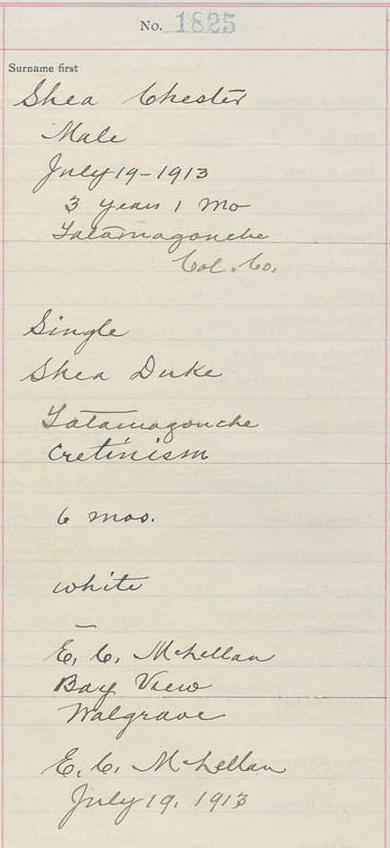 No. 1825
Surname first
Shea Chester
Male
July 19-1913
3 years 1 Mo
Tatamagonche
Col. Co.
Single
Shea Duke
Tatamagonche
Cretinism
6 mos.
white
—
E. C. McLellan
Bay View
Walgrave
E. C. McLellan
July 19, 1913